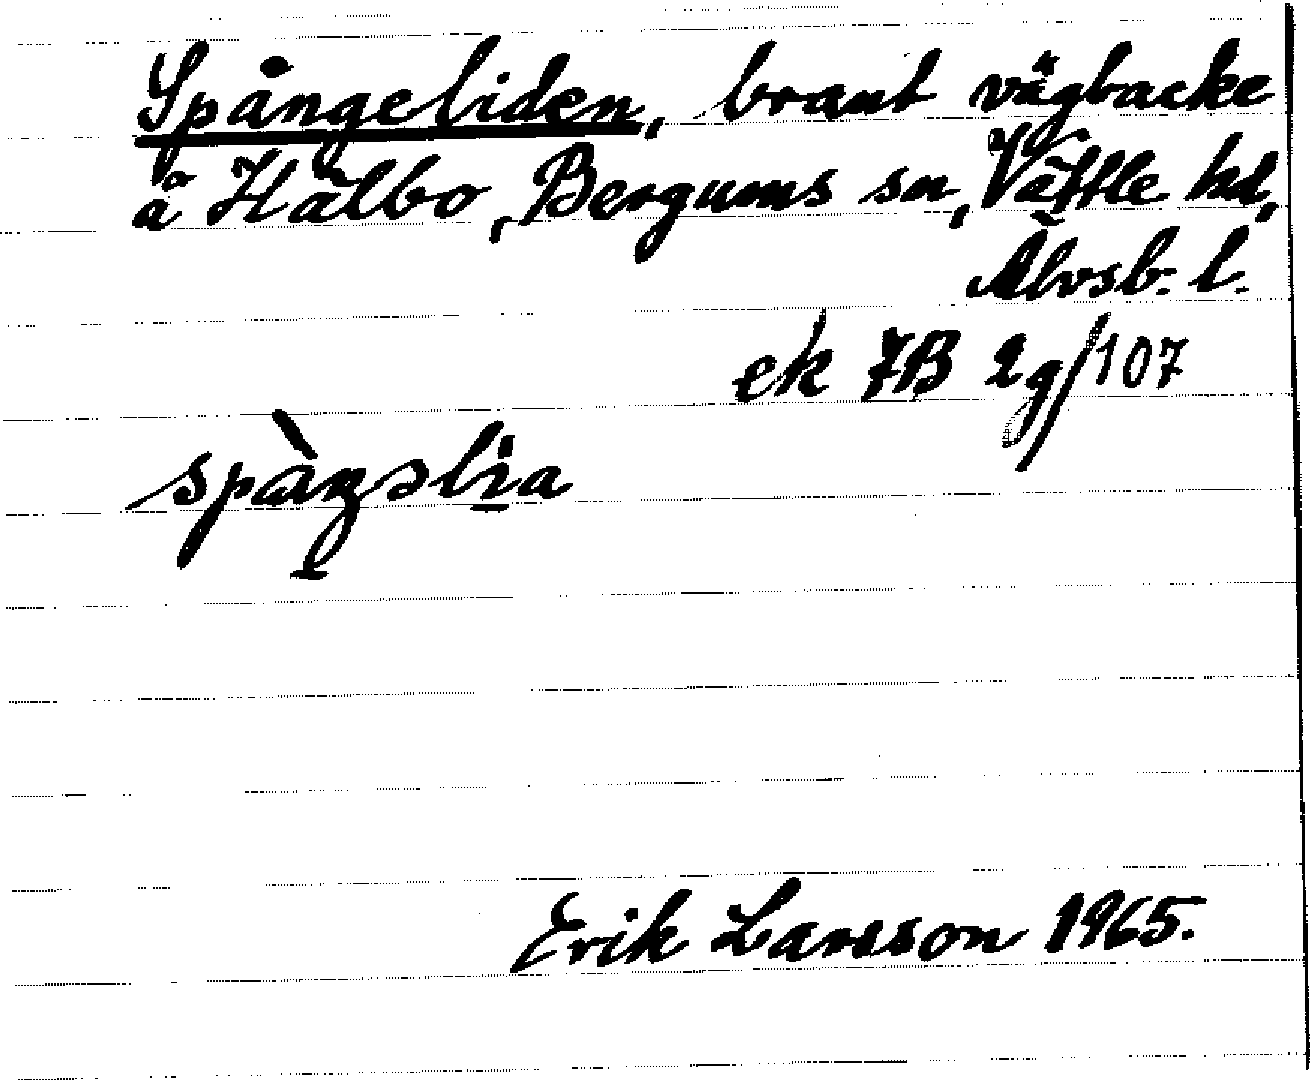 Spångeliden, brant vägbacke
å Hälbo, Bergums sn, Vättle hd,
Älvsb. l.
ek 7B 2g/107
Erik Larsson 1965.